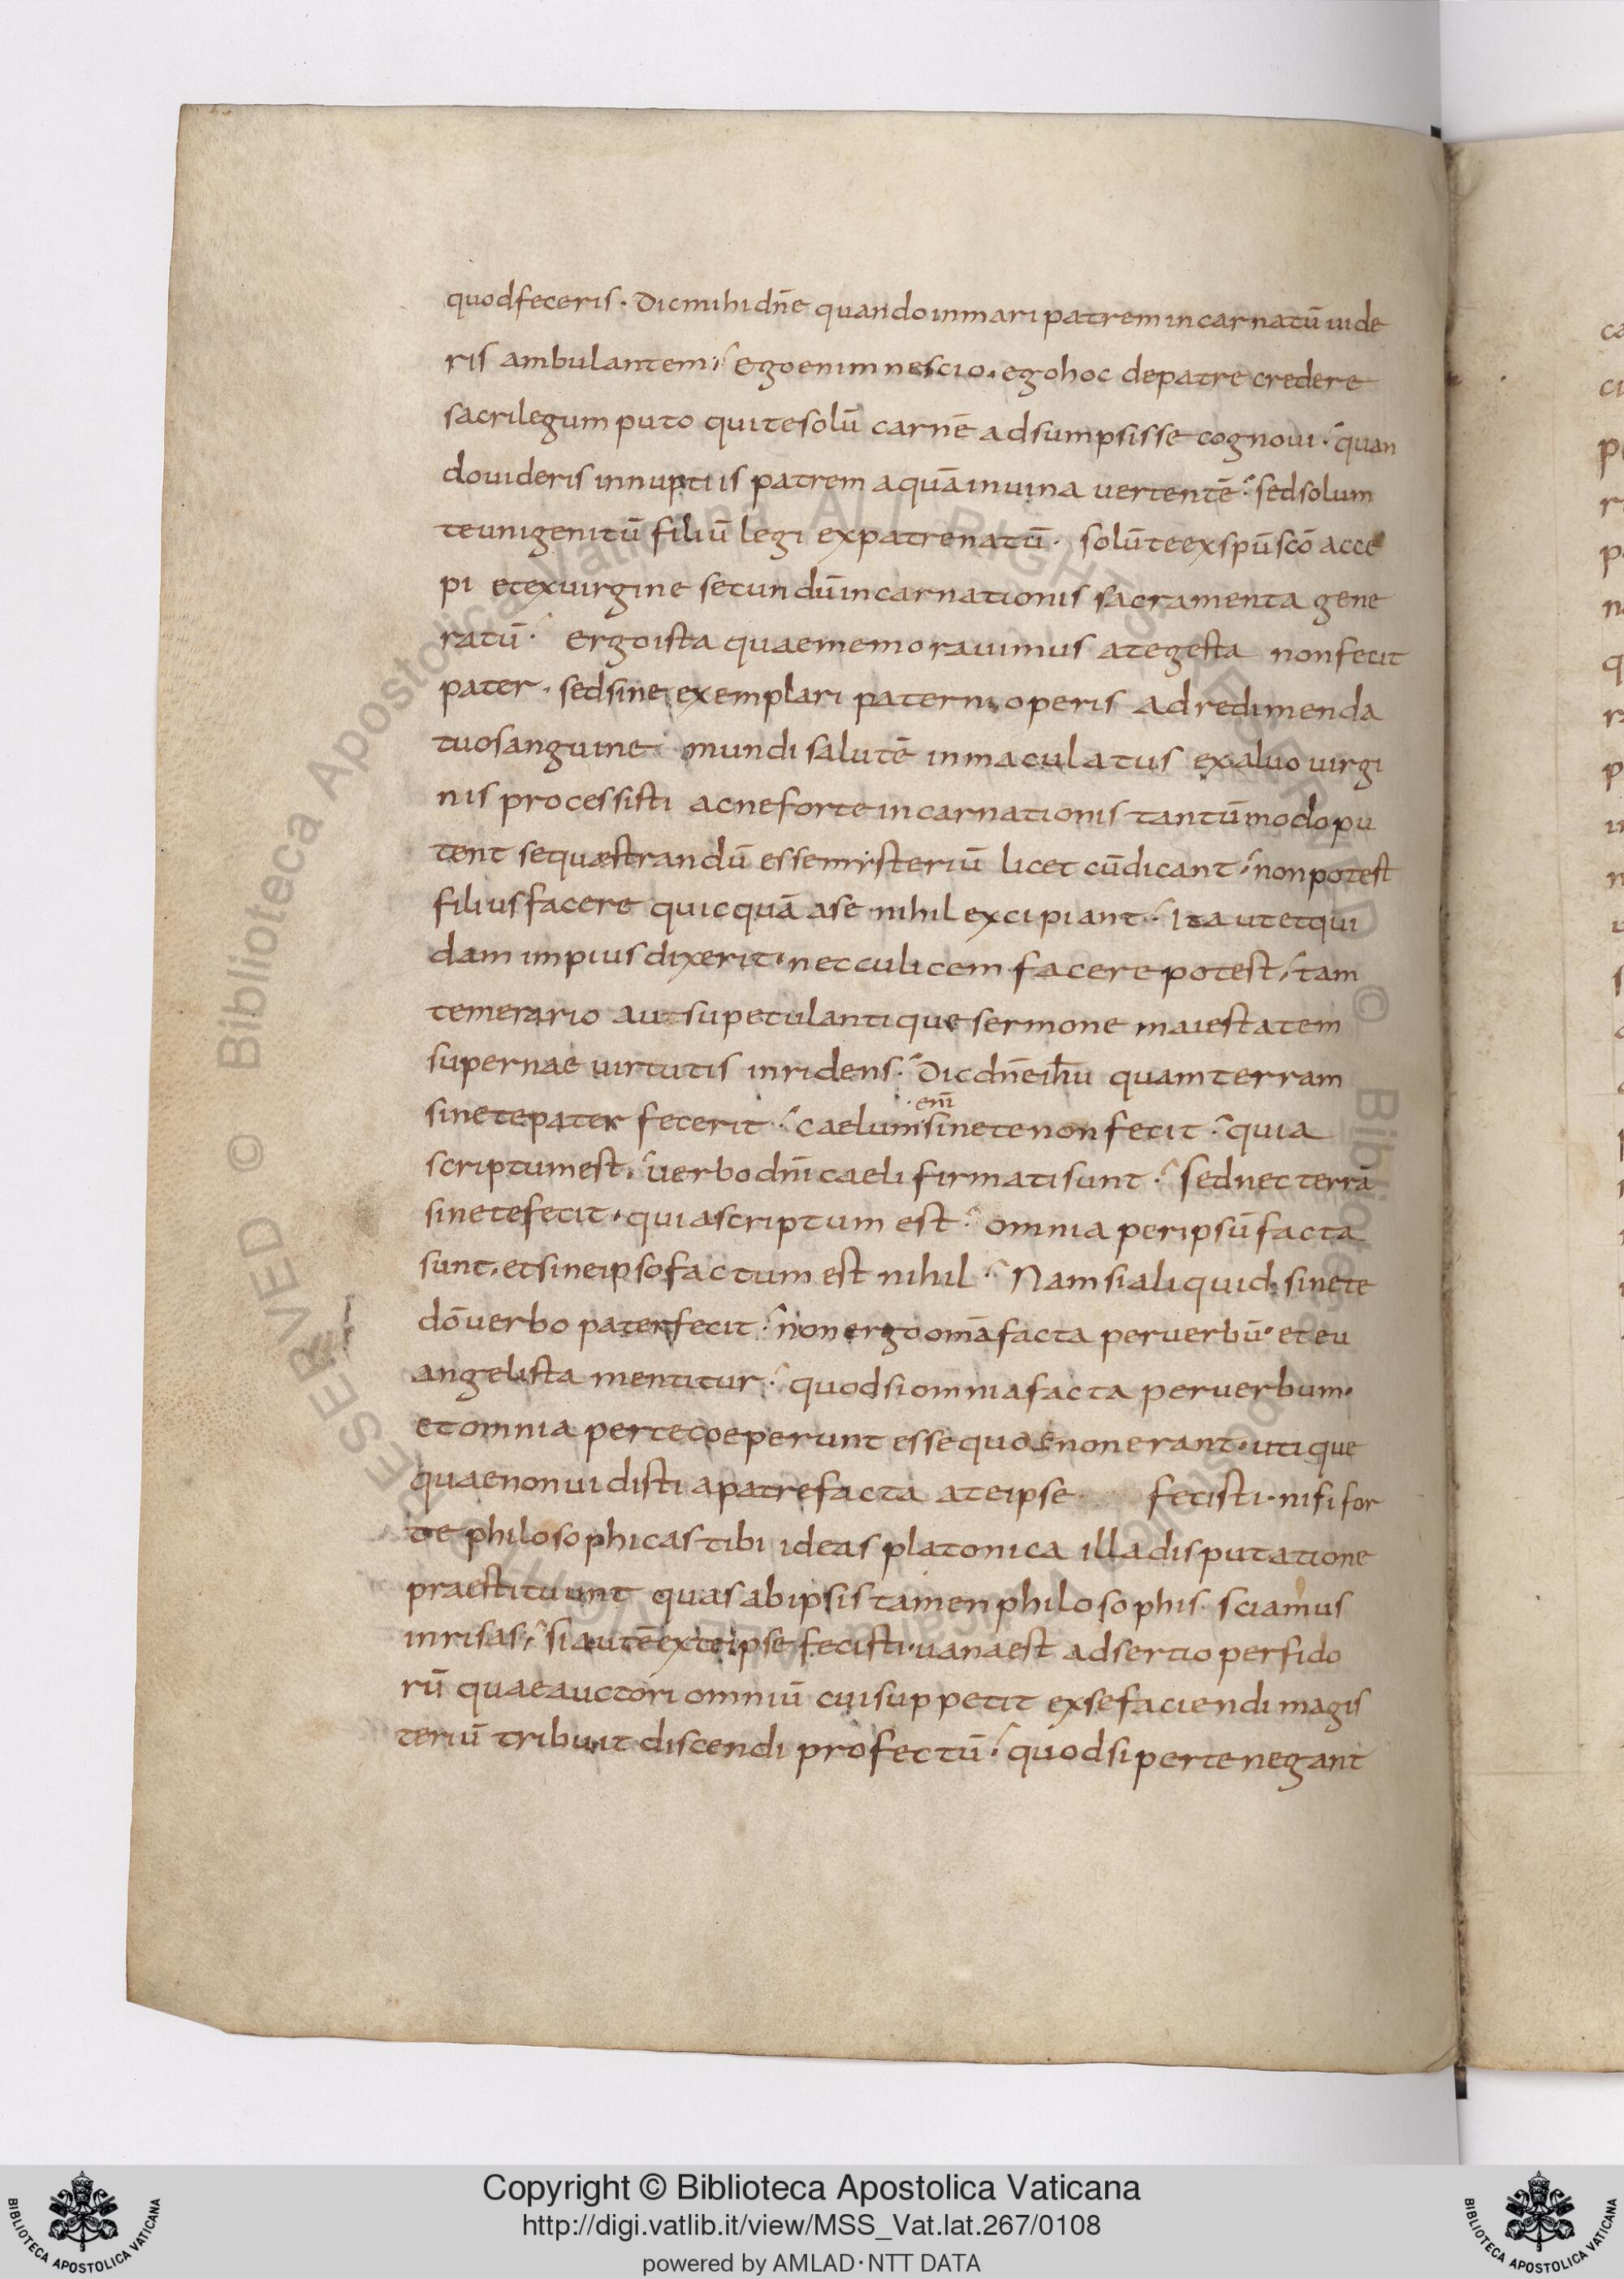 quodfeceris. Dicmihidn̄e quandoinmaripatremincarnatū uide
ris ambulantem; Egoenimnescio. egohoc depatre credere
sacrilegum puto quitesolū carnē adsumpsisse cognoui. quan
douideris innuptiis patrem aquāinuina uertentē. sedsolum
teunigenitū filiū legi expatrenatū. solūteexsp̄u sc̄o acce
pi etexuirgine secundūincarnationis sacramenta gene
ratū. ergoista quaememorauimus ategesta nonfecit
pater. sedsine exemplari paterni operis adredimenda
tuosanguine mundi salutē inmaculatus exaluo uirgi
nis processisti acneforteincarnationis tantūmodopu
tent sequæstrandū essemysteriū licet cūdicant. nonpotest
filiusfacere quicquā ase nihil excipiant. Ita utetqui
dam impius dixerit. necculicem facerepotest. tam
temerario autsupetulantique sermone maiestatem
supernae uirtutis inridens. Dicdn̄eih̄u quamterram
sinetepater fecerit. caelum enī sinetenonfecit. quia
scriptumest. uerbodn̄i caeli firmatisunt. sednec terrā
sinetefecit. quiascriptum est. omnia peripsūfacta
sunt. etsineipsofactum est nihil. Namsialiquid sinete
dō uerbo paterfecit. nonergoomāfacta peruerbū. eteu
angelista mentitur. quodsiomniafacta peruerbum.
etomnia pertecoeperunt essequaenonerant. utique
quaenonuidisti apatrefacta ateipse fecisti. nisifor
te philosophicastibi ideas platonica illadisputatione
praestituunt quasabipsis tamenphilosophis sciamus
inrisas. siautēexteipse fecisti. uanaest adsertio perfido
rū quaeauctori omniū cuisuppetit exsefaciendi magis
teriū tribuit discendi profectū. quodsipertenegant
Copyright © Biblioteca Apostolica Vaticana
http://digi.vatlib.it/view/MSS_Vat.lat.267/0108
powered by AMLAD·NTT DATA
BIBLIOTECA APOSTOLICA VATICANA
BIBLIOTECA APOSTOLICA VATICANA